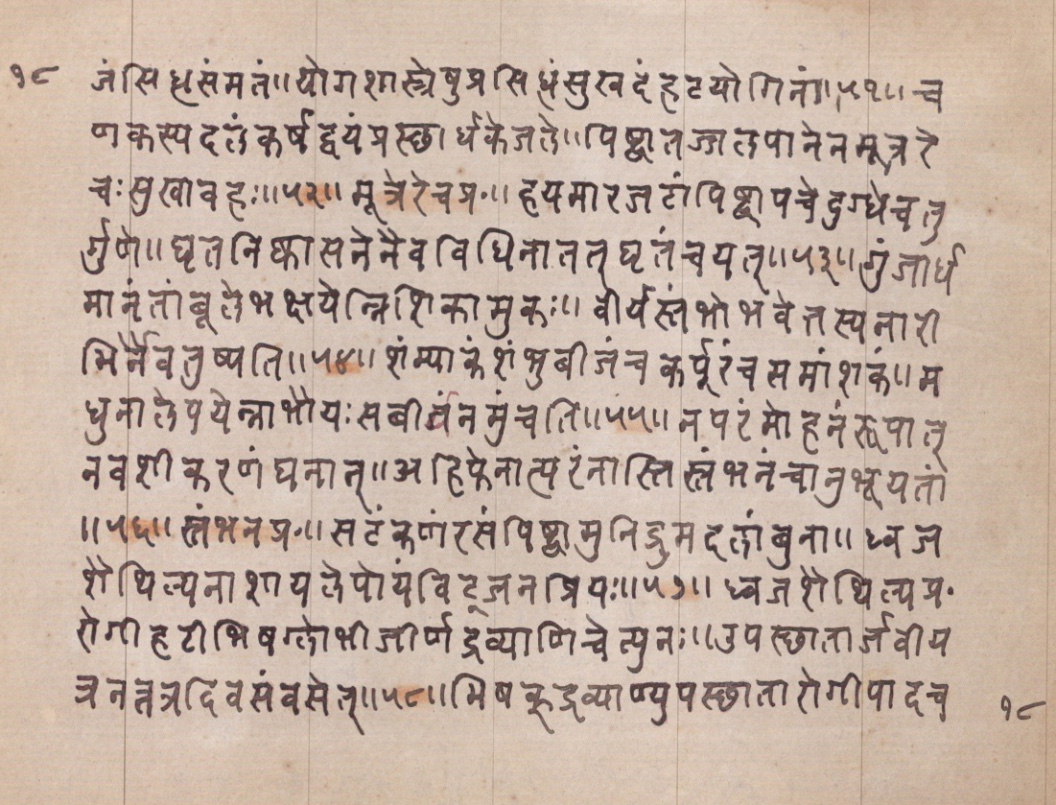 १८ जं सिद्धसंमतं॥योगशास्त्रेषुप्रसिद्धंसुखदंहटयोगिनां॥५१॥च
णकस्यदलंकर्षद्वयंप्रस्छार्धकेजले॥पिष्ट्वातज्जलपानेनमूत्ररे
चःसुखावहः॥५२॥मूत्ररेचप्र॰॥हयमारजटांपिष्ट्वापचेदुग्धेचतु
र्गुणे॥घृतनिष्कासनेनैवविधिनाततघृतंचयत्॥५३॥गुंजार्ध
मानंतांबूलेभक्षयेन्निशिकामुकः॥वीर्यस्तंभोभवेत्तस्यनारी
भिर्नैवतुष्यति॥५४॥शंम्याकंशंभुबीजंचकर्पूरंचसमांशकं॥म
धुनालेपयेन्नाभौयःसबीर्यंनमुंचति॥५५॥नपरंमोहनंरूपात्
नवशीकरणंघनात्॥अहिफेनात्परंनास्तिस्तंभनंचानुभूयतां
॥५६॥स्तंभनप्र॰॥सटंकणंरसंपिष्ट्वामुनिद्रुमदलांबुना॥ध्वज
शैथिल्यनाशायलेपोयंविट्जनप्रियः॥५७॥ध्वजशैथिल्यप्र॰
रोगीहटीभिषग्लोभीजीर्णद्रव्याणिचेत्पुनः॥उपस्छातार्जवीय
त्रनतत्रदिवसंवसेत्॥५८॥भिषक्द्रव्याण्युपस्छातारोगीपादच
१८